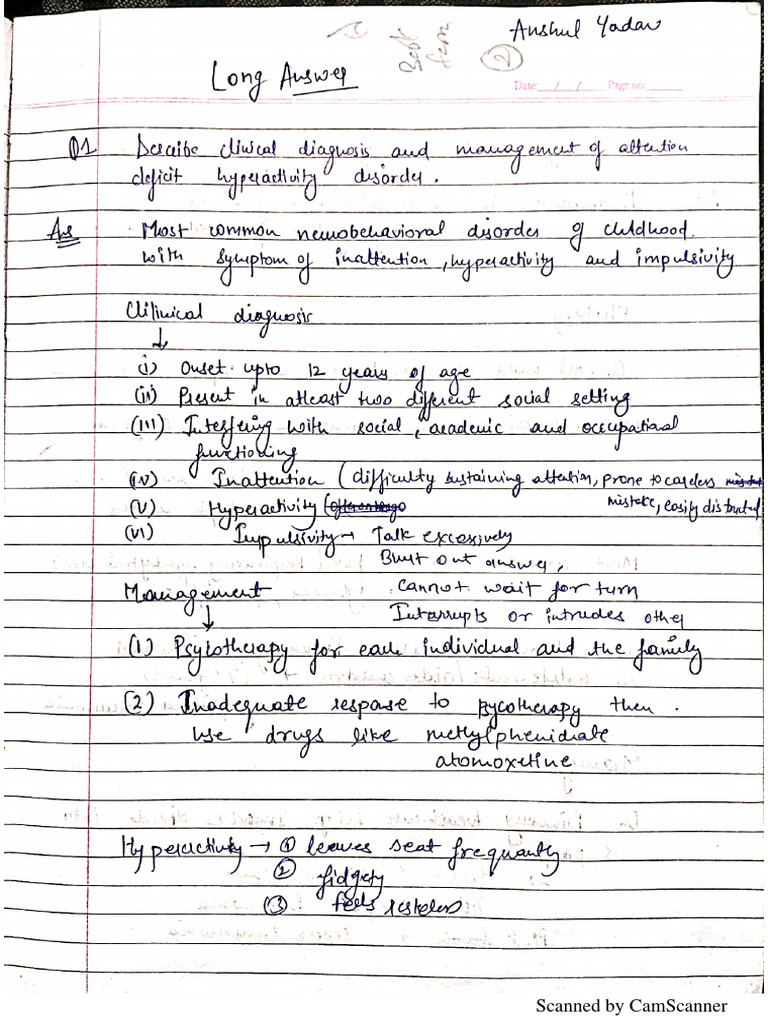 Anshul Yadav
Best
2
Date: __/__/__ Page no:____
Long Answer
Q1 Describe clinical diagnosis and management of attention
deficit hyperactivity disorder.
Ans Most common neurobehavioral disorder of childhood.
with symptom of inattention, hyperactivity and impulsivity
Clilinical diagnosis
↓
(i) Onset upto 12 years of age
(ii) Present in atleast two different social setting
(III) Interfering with social, academic and occupational
functioning
(iv) Inattention (difficulty sustaining attention, prone to careless
mistake, easify distracted
(V) Hyperactivity
(VI) Impulsivity → Talk excessively
Blurt out answer,
Cannot wait for turn
Interrupts or intrudes other
Management
↓
(1) Psycotherapy for each individual and the family
(2) Inadequate response to pycotherapy then.
use drugs like methylphenidate
atomoxetine
Hyperactivity → ① leaves seat frequantly
② fidgety
③ feels restless
Scanned by CamScanner